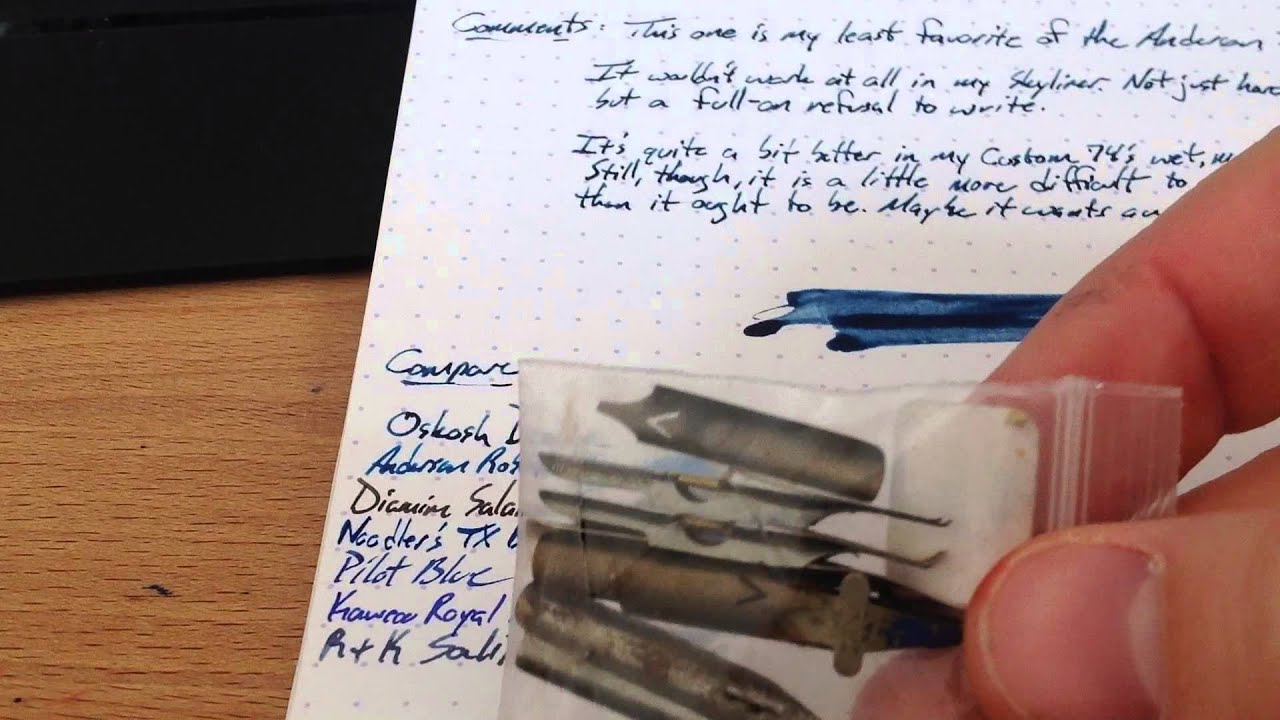 Comments: This one is my least favorite of the Anderson
It wouldn't work at all in my Skyliner. Not just hard
but a full-on refusal to write.
It's quite a bit better in my Custom 74's wet,
Still, though, it is a little more difficult to
than it ought to be. Maybe it wants
Compare
Oskosh
Anderson
Diamine
Noodler's TX
Pilot Blue
Kaweco Royal
R+K